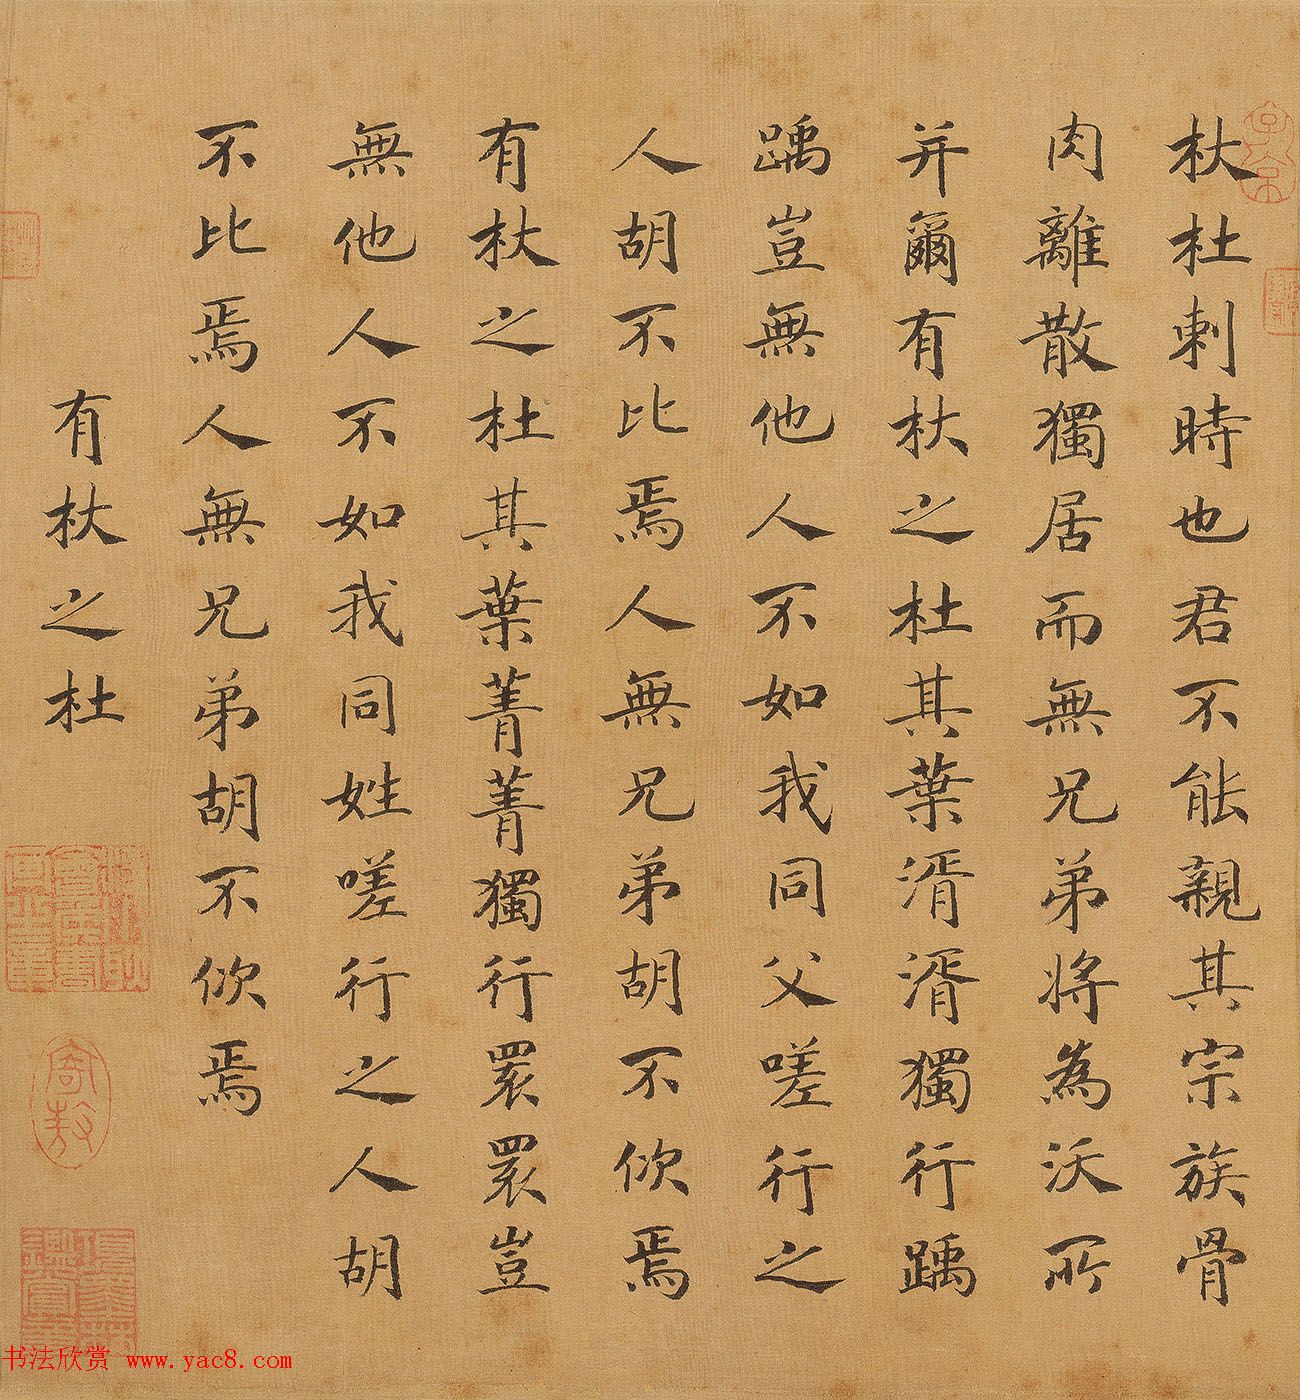 杕杜刺時也君不能親其宗族骨
肉離散獨居而無兄弟將為沃所
并爾有杕之杜其葉湑湑獨行踽
踽豈無他人不如我同父嗟行之
人胡不比焉人無兄弟胡不佽焉
有杕之杜其葉菁菁獨行睘睘豈
無他人不如我同姓嗟行之人胡
不比焉人無兄弟胡不佽焉
有杕之杜
书法欣赏 www.yac8.com